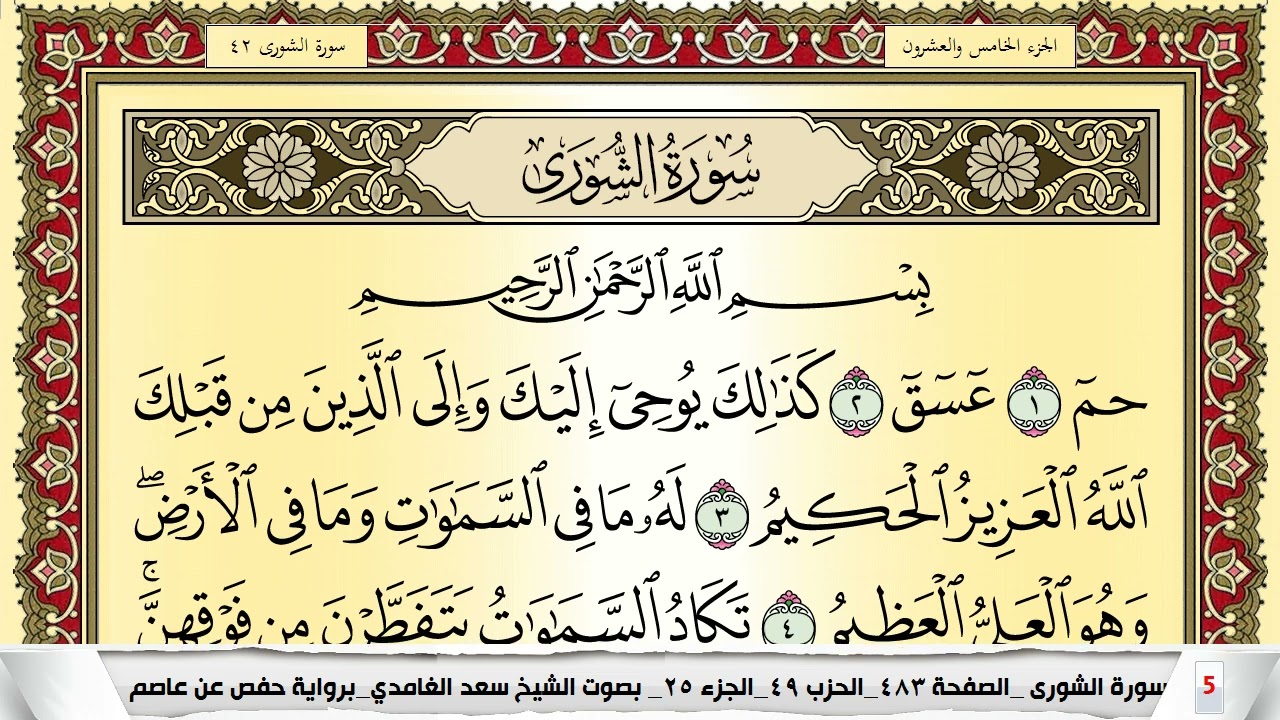 الجزء الخامس والعشرون
سورة الشورى ٤٢
سُورَةُ الشُّورَىٰ
بِسْمِ ٱللَّهِ ٱلرَّحْمَٰنِ ٱلرَّحِيمِ
حمٓ ١ عٓسٓقٓ ٢ كَذَٰلِكَ يُوحِىٓ إِلَيْكَ وَإِلَى ٱلَّذِينَ مِن قَبْلِكَ
ٱللَّهُ ٱلْعَزِيزُ ٱلْحَكِيمُ ٣ لَهُۥ مَا فِى ٱلسَّمَٰوَٰتِ وَمَا فِى ٱلْأَرْضِ ۖ
وَهُوَ ٱلْعَلِىُّ ٱلْعَظِيمُ ٤ تَكَادُ ٱلسَّمَٰوَٰتُ يَتَفَطَّرْنَ مِن فَوْقِهِنَّ ۚ
5 سورة الشورى _الصفحة ٤٨٣_الحزب ٤٩_الجزء ٢٥_ بصوت الشيخ سعد الغامدي_برواية حفص عن عاصم